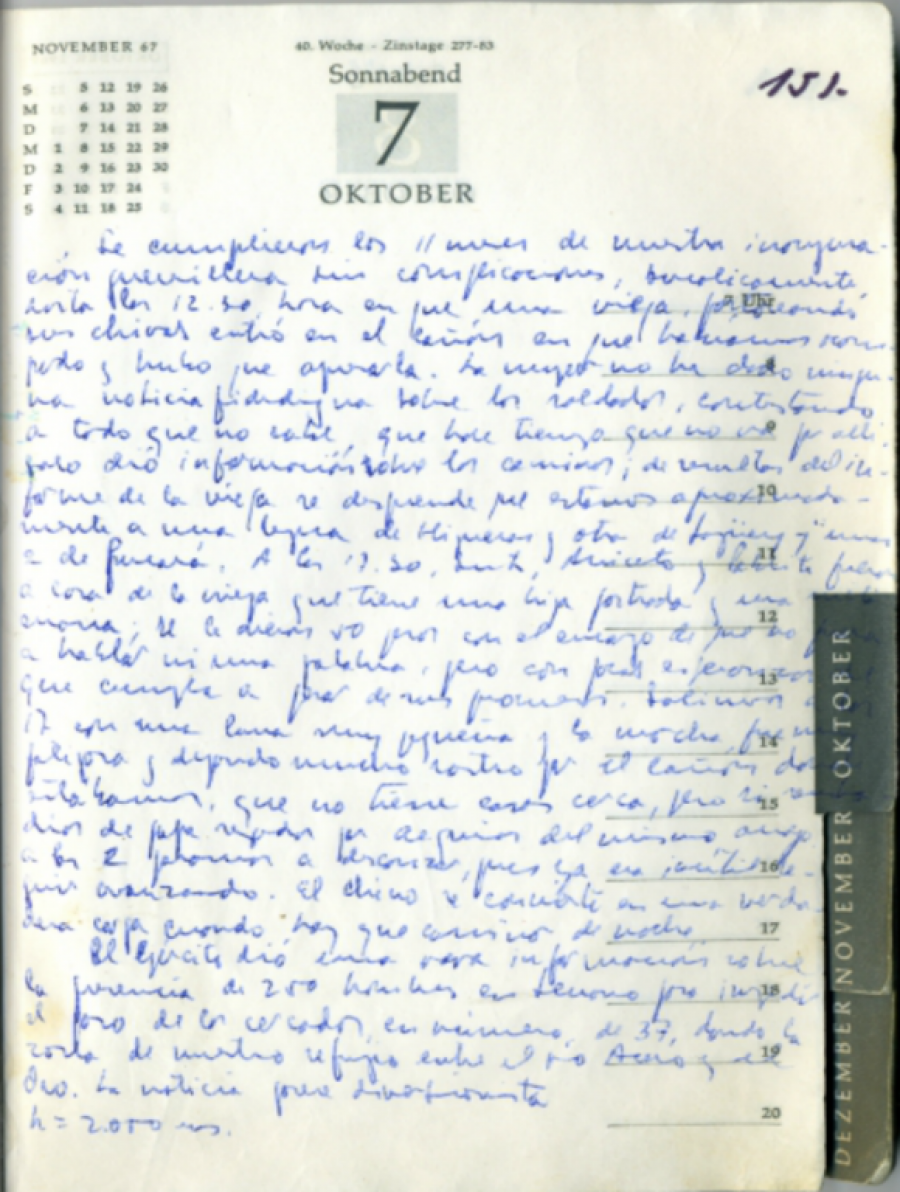 NOVEMBER 67
S 5 12 19 26
M 6 13 20 27
D 7 14 21 28
M 1 8 15 22 29
D 2 9 16 23 30
F 3 10 17 24
S 4 11 18 25
40. Woche - Zinstage 277-83
Sonnabend
7
OKTOBER
151.
Se cumplieron los 11 meses de nuestra inaugura-
ción guerrillera sin complicaciones, bucolicamente,
hasta las 12.30, hora en que una vieja, pastoreando
sus chivas entró en el cañón en que habíamos acam-
pado y hubo que apresarla. La mujer no ha dado ningu-
na noticia fidedigna sobre los soldados, contestando
a todo que no sabe, que hace tiempo que no va por allí.
solo dió información sobre los caminos; de resultas del in-
forme de la vieja se desprende que estamos aproximada-
mente a una legua de Higueras y otra de Jagüey y unas
2 de Pucará. A las 17.30, Inti, Aniceto y Pablito fueron
a casa de la vieja que tiene una hija postrada y una
enana; se le dieron 50 pesos con el encargo de que no fuera
a hablar ni una palabra, pero con pocas esperanzas
que cumpla a pesar de sus promesas. Salimos
17 con una luna muy pequeña y la marcha fue muy
fatigosa y dejando mucho rastro por el cañón donde
estábamos, que no tiene casas cerca, pero sí
de papa regados por acequias del mismo arroyo
a las 2 paramos a descansar, pues ya era inútil se-
guir avanzando. El Chino se convierte en una verda-
dera carga cuando hay que caminar de noche.
El Ejército dió una rara información sobre
la presencia de 250 hombres en Serrano para impedir
el paso de los cercados, en número de 37, dando la
zona de nuestro refugio entre el río Acero y el
Oro. La noticia parece diversionista
h = 2.000 ms.
7 Uhr
8
9
10
11
12
13
14
15
16
17
18
19
20
OKTOBER
NOVEMBER
DEZEMBER